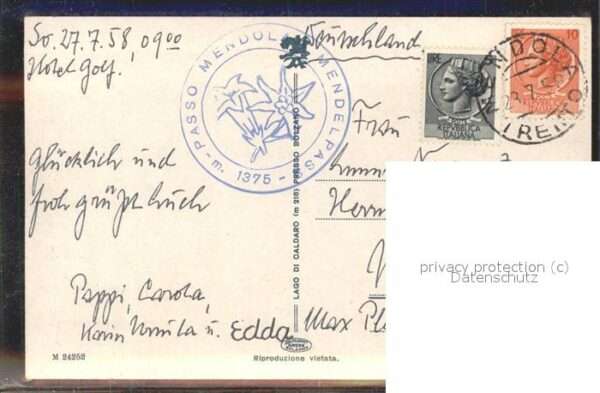 So. 27.7.58, 0900
Hotel Golf.
Glücklich und
froh grüßt Euch
Pappi, Carola,
Karin Ursula u. Edda
M 24252
PASSO MENDOLA MENDELPASS
- m. 1375 -
LAGO DI CALDARO (m 216) PRESSO BOLZANO
Riproduzione vietata.
Deutschland
LIRE
REPVBBLICA
ITALIANA
10
MENDOLA
TRENTO
Frau
Herrn
Max
privacy protection (c)
Datenschutz